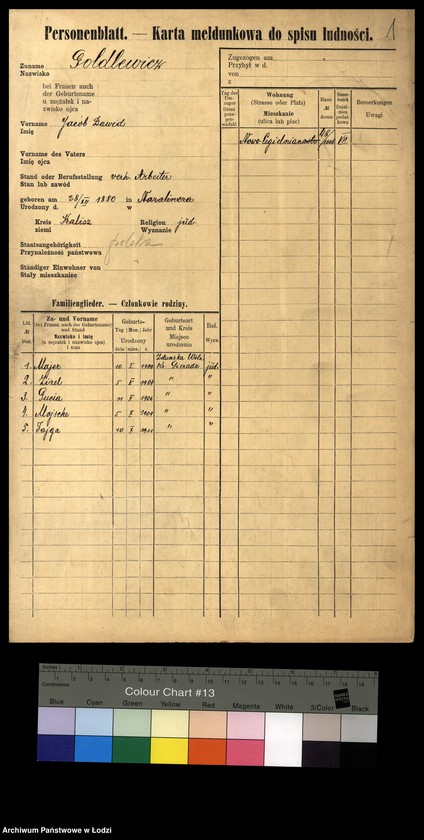 Personenblatt. — Karta meldunkowa do spisu ludności.
1
Zuname
Nazwisko
Goldlewicz
bei Frauen auch
der Geburtsname
u mężatek i na-
zwisko ojca
Vorname
Imię
Jacob Dawid
Vorname des Vaters
Imię ojca
Stand oder Berufsstellung
Stan lub zawód
verh. Arbeiter
geboren am 28/XII 1880 in
Urodzony d. w
Kreis Kalisz Religion jüd.
ziemi Wyznanie
Staatsangehörigkeit
Przynależność państwowa
polska
Ständiger Einwohner von
Stały mieszkaniec
Zugezogen am
Przybył w d.
von
z
Tag des Um-
zuges
Dzień
przepro-
wadzki
Wohnung
(Strasse oder Platz)
Mieszkanie
(ulica lub plac)
Haus-
№
domu
Bemerkungen
Uwagi
VII
Familienglieder. — Członkowie rodziny.
Zu- und Vorname
(bei Frauen auch der Geburtsname)
und Stand
Nazwisko i imię
(u mężatek i nazwisko ojca)
i stan
Geburts-
Tag Mon. Jahr
Urodzony
dnia mies. r.
Geburtsort
und Kreis
Miejsce
urodzenia
Rel.
Wyzn.
Zdunska Wola
1. Majer 10 Kr. Sieradz jüd.
2. 5 " "
3. Gucia " "
4. Mojsche 5 " "
5. Fajga 10 " "
Inches
Centimetres
Colour Chart #13
Blue Cyan Green Yellow Red Magenta White 3/Color Black
Archiwum Państwowe w Łodzi